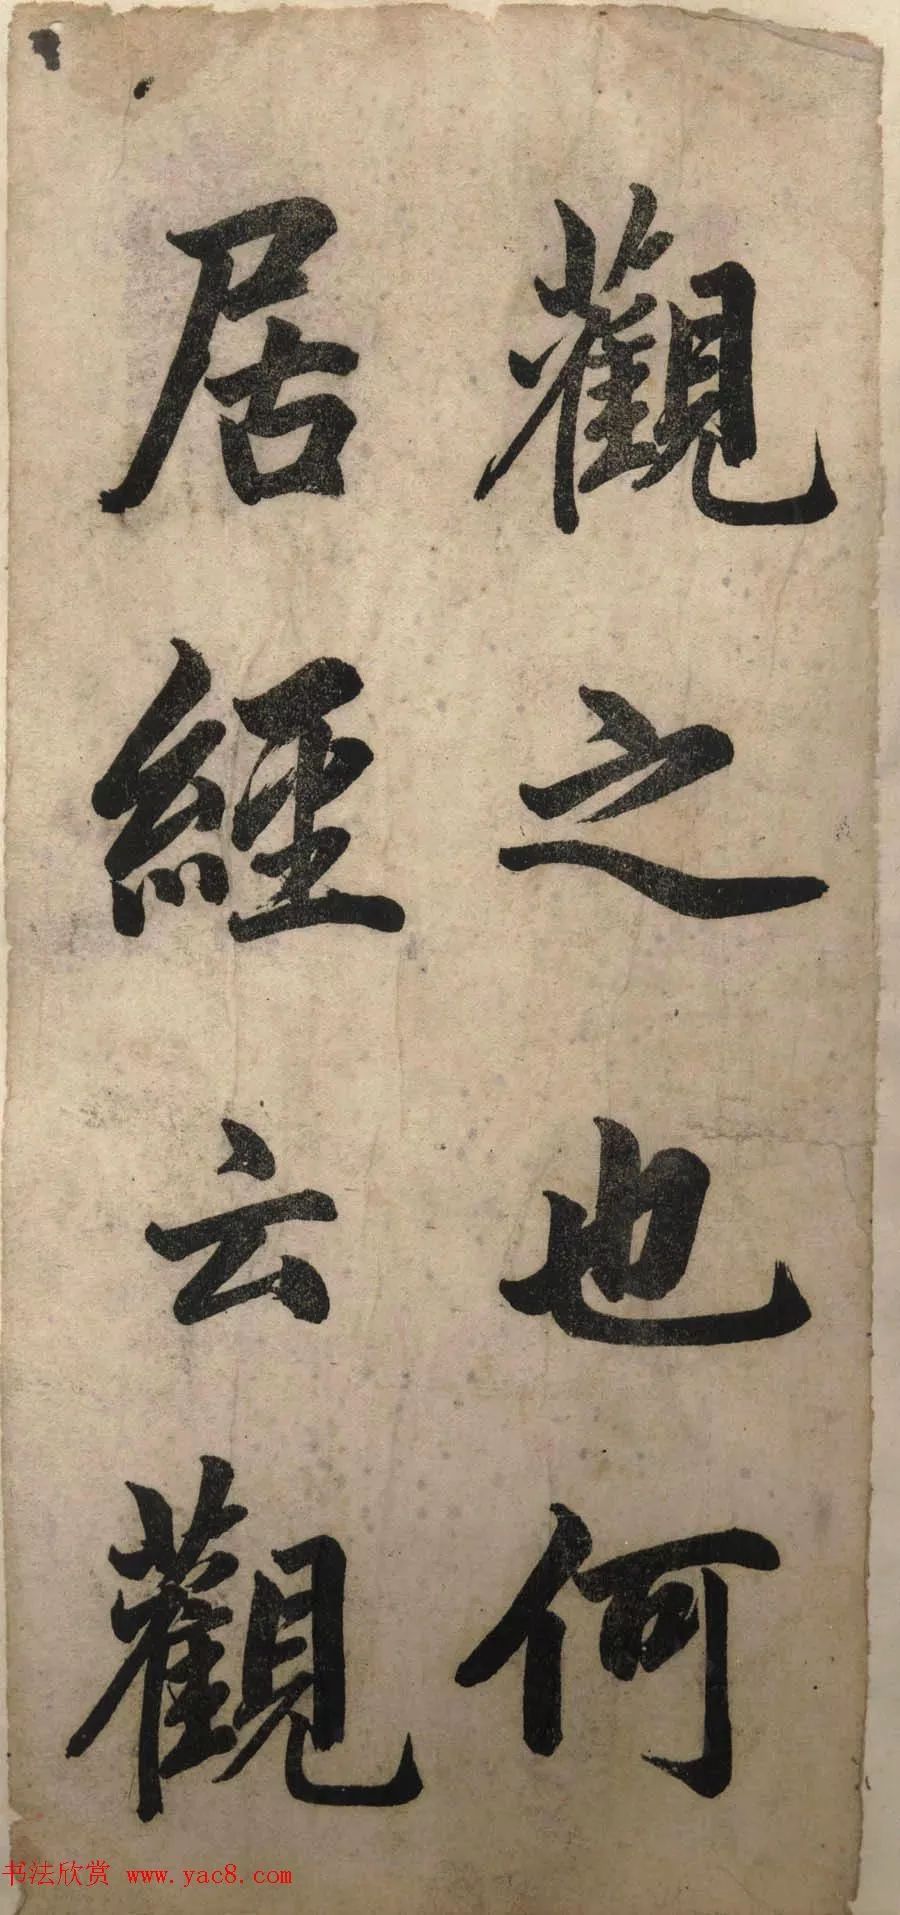 觀之也何
居經云觀
书法欣赏 www.yac8.com